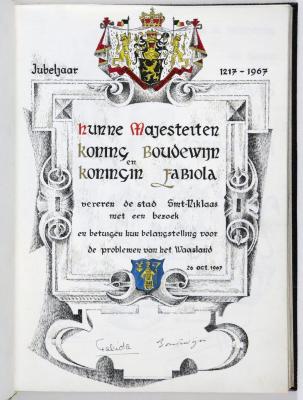 Jubeljaar 1217 - 1967
Hunne Majesteiten
Koning Boudewijn
en
Koningin Fabiola
vereren de stad Sint-Niklaas
met een bezoek
en betuigen hun belangstelling voor
de problemen van het Waasland
26 oct. 1967
Fabiola Boudewijn